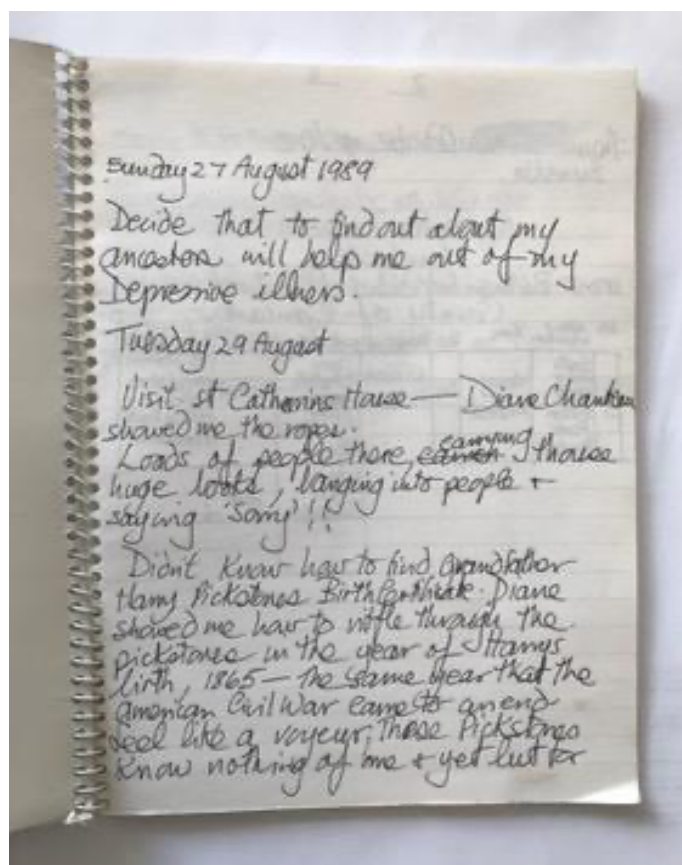 Sunday 27 August 1989
Decide that to find out about my
ancestors will help me out of my
Depressive illness.
Tuesday 29 August
Visit St Catherins House — Diane
showed me the ropes.
Loads of people there, carrying those
huge books, banging into people +
saying 'Sorry'!!
Didn't know how to find Grandfather
Harry Pickstones Birth Certificate. Diane
showed me how to riffle through the
pickstones in the year of Harrys
birth, 1865 — the same year that the
american Civil War came to an end
Feel like a voyeur; These Pickstones
know nothing of me + yet but for